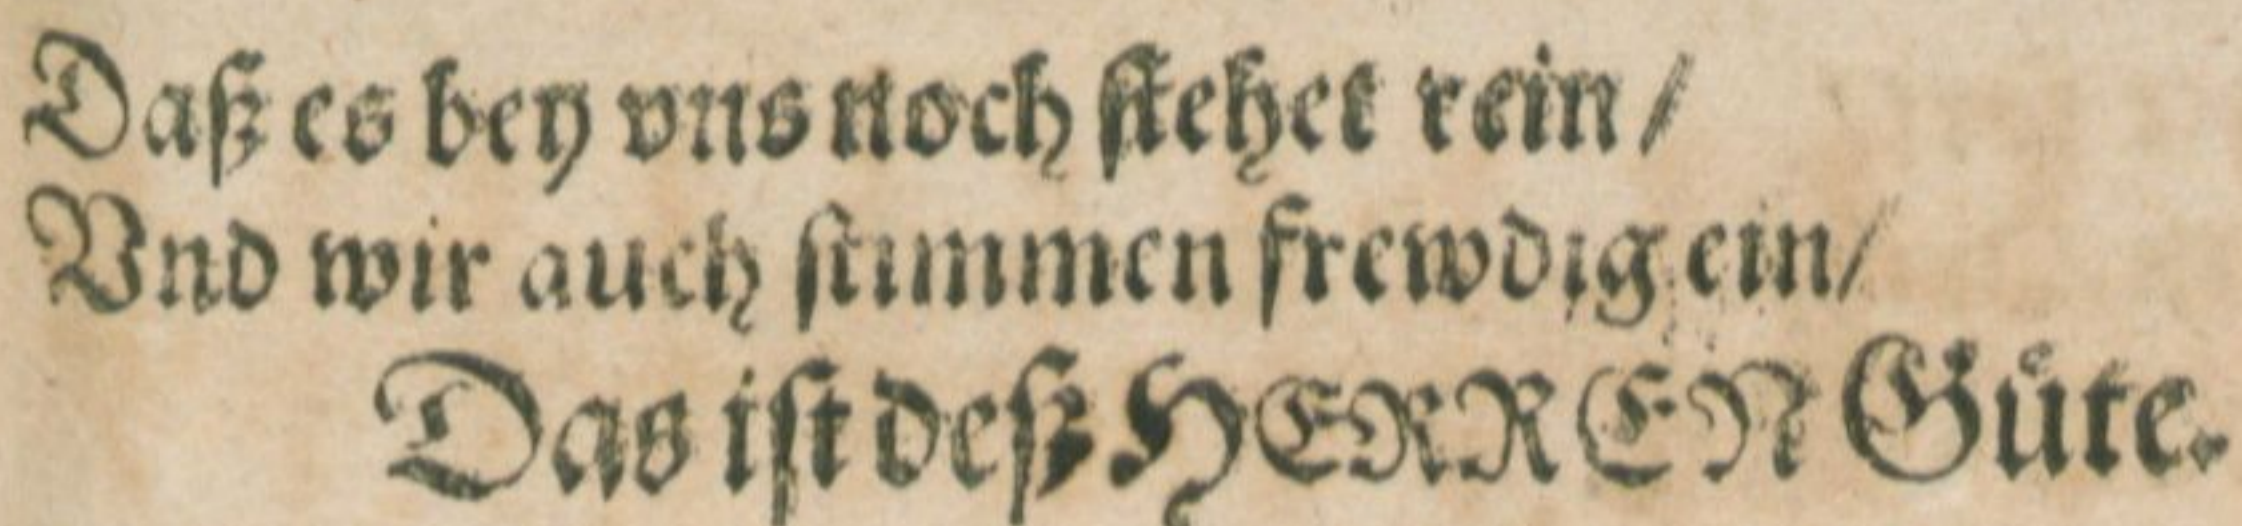 Daß es bey vns noch stehet rein /
Vnd wir auch stimmen frewdig ein /
Das ist deß HERREN Güte.